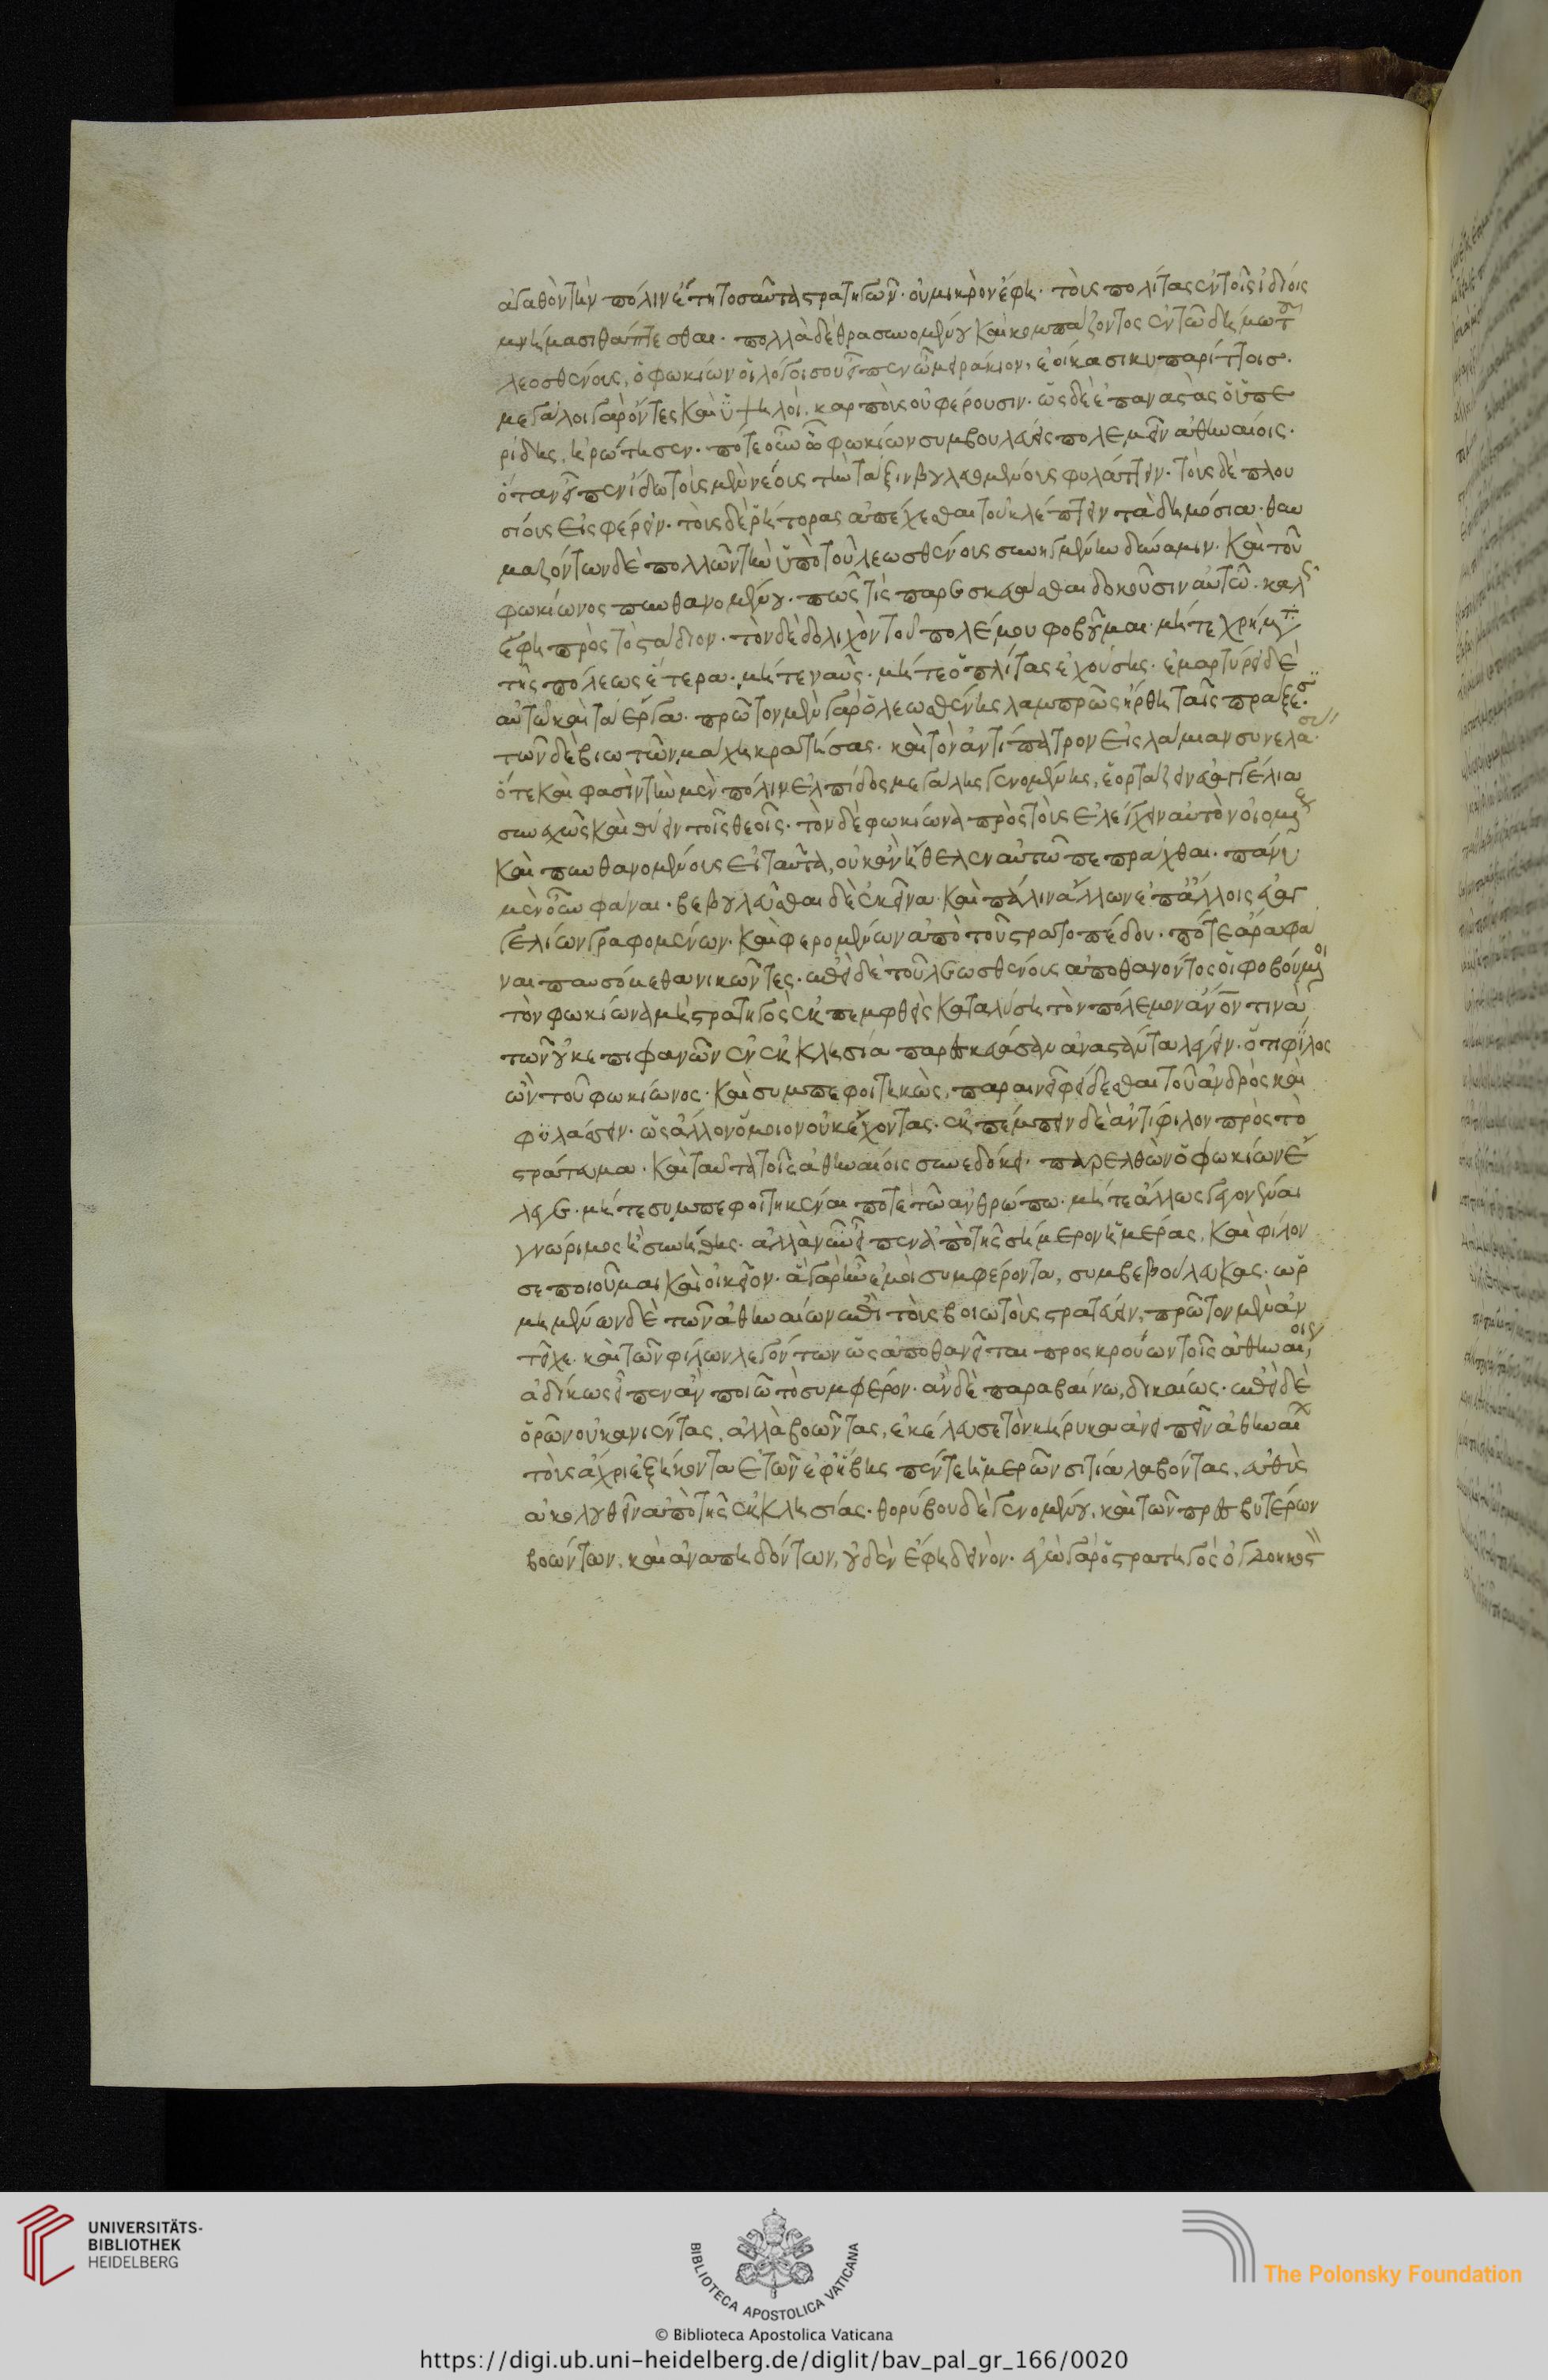 ἀγαθὸν τὴν πόλιν ἔτη τοσαῦτα στρατηγῶν· οὐ μικρὸν ἔφη· τοὺς πολίτας ἐν τοῖς ἰδίοις
μνήμασι θάπτεσθαι. πολλὰ δὲ θρασυνομένου καὶ κομπάζοντος ἐν τῶ δήμω τοῦ
λεοσθένους, ὁ φωκίων οἱ λόγοι σου εἶπεν ὦ μειράκιον, ἐοίκασι κυπαρίττοισ.
μεγάλοι γὰρ ὄντες καὶ ὑψηλοὶ, καρποὺς οὐ φέρουσιν. ὡς δὲ ἐπαναστὰς ὁ ὑπε
ρίδης, ἠρώτησεν. πότε οὖν ὦ φωκίων συμβουλεύεις πολεμεῖν ἀθηναίοις.
ὅταν εἶπεν ἴδω τοὺς μὲν νέους τὴν τάξιν βουλομένους φυλάττειν. τοὺς δὲ πλου
σίους εἰσφέρειν. τοὺς δὲ ῥήτορας ἀπέχεσθαι τοῦ κλέπτειν τὰ δημόσια. θαυ
μαζόντων δὲ πολλῶν τὴν ὑπὸ τοῦ λεωσθένους συνηγμένην δύναμιν. καὶ τοῦ
φωκίωνος πυνθανομένου. πῶς τίς παρεσκευάσθαι δοκοῦσιν αὐτῶ. καλῶς
ἔφη πρὸς τὸ στάδιον. τὸν δὲ δολιχὸν τοῦ πολέμου φοβοῦμαι. μήτε χρήματα
τῆς πόλεως ἕτερα. μήτε ναῦς. μήτε ὁπλίτας ἐχούσης. ἐμαρτύρει δὲ
αὐτῶ καὶ τὰ ἔργα. πρῶτον μὲν γὰρ ὁ λεωσθένης λαμπρῶς ἤρθη ταῖς πράξεσι.
τῶν δὲ βιωτῶν, μάχη κρατήσας. καὶ τὸν ἀντίπατρον εἰς λάμιαν συνελάσας.
ὅτε καὶ φασὶν τὴν μὲν πόλιν ἐλπίδος μεγάλης γενομένης, ἑορτάζειν εὐαγγέλια
συνεχῶς καὶ θύειν τοῖς θεοῖς. τὸν δὲ φωκίωνα πρὸς τοὺς ἐλέγχειν αὐτὸν οἰομένους
καὶ πυνθανομένους εἰ ταῦτα, οὐκ ἂν ἤθελεν αὐτῶ πεπράχθαι. πάνυ
μὲν οὖν φάναι. βεβουλεῦσθαι δὲ ἐκεῖνα. καὶ πάλιν ἄλλων ἐπ' ἄλλοις εὐαγ
γελίων γραφομένων. καὶ φερομένων ἀπὸ τοῦ στρατοπέδου. πότε ἄρα φά
ναι παυσόμεθα νικῶντες. ἐπεὶ δὲ τοῦ λεωσθένους ἀποθανόντος οἱ φοβούμενοι
τὸν φωκίωνα μὴ στρατηγὸς ἐκπεμφθεὶς καταλύση τὸν πόλεμον ἄνον τινὰ
τῶν οὐκ ἐπιφανῶν ἐν ἐκκλησία παρεσκεύασαν ἀναστάντα λέγειν. ὅτι φίλος
ὢν τοῦ φωκίωνος. καὶ συμπεφοιτηκὼς, παραινεῖ φείδεσθαι τοῦ ἀνδρὸς καὶ
φυλάττειν. ὡς ἄλλον ὅμοιον οὐκ ἔχοντας. ἐκπέμπειν δὲ ἀντίφιλον πρὸς τὸ
στράτευμα. καὶ ταῦτα τοῖς ἀθηναίοις συνεδόκει. παρελθὼν ὁ φωκίων ἔ
λεγε. μήτε συμπεφοιτηκέναι ποτὲ τῶ ἀνθρώπω. μήτε ἄλλως γεγονέναι
γνώριμος ἢ συνήθης. ἀλλὰ νῦν εἶπεν ἀπὸ τῆς σήμερον ἡμέρας, καὶ φίλον
σε ποιοῦμαι καὶ οἰκεῖον. ἃ γὰρ ἦν ἐμοὶ συμφέροντα, συμβεβούλευκας. ὡρ
μημένων δὲ τῶν ἀθηναίων ἐπὶ τοὺς βοιωτοὺς στρατεύειν, πρῶτον μὲν ἀν
τεῖχε. καὶ τῶν φίλων λεγόντων ὡς ἀποθανεῖται προσκρούων τοῖς ἀθηναίοις,
ἀδίκως εἶπεν ἂν ποιῶ τὸ συμφέρον. ἂν δὲ παραβαίνω, δικαίως. ἐπεὶ δὲ
ὁρῶν οὐκ ἀνιέντας, ἀλλὰ βοῶντας, ἐκέλευσε τὸν κήρυκα ἀνειπεῖν ἀθηναίων
τοὺς ἄχρι ἑξήκοντα ἐτῶν ἐφ' ἥβης πέντε ἡμερῶν σιτία λαβόντας, εὐθὺς
ἀκολουθεῖν ἀπὸ τῆς ἐκκλησίας. θορύβου δὲ γενομένου, καὶ τῶν πρεσβυτέρων
βοώντων, καὶ ἀναπηδόντων, οὐδὲν ἔφη δεινόν. ἐγὼ γὰρ ὁ στρατηγὸς ὀγδοηκοστὸν
UNIVERSITÄTS-
BIBLIOTHEK
HEIDELBERG
BIBLIOTECA APOSTOLICA VATICANA
The Polonsky Foundation
© Biblioteca Apostolica Vaticana
https://digi.ub.uni-heidelberg.de/diglit/bav_pal_gr_166/0020